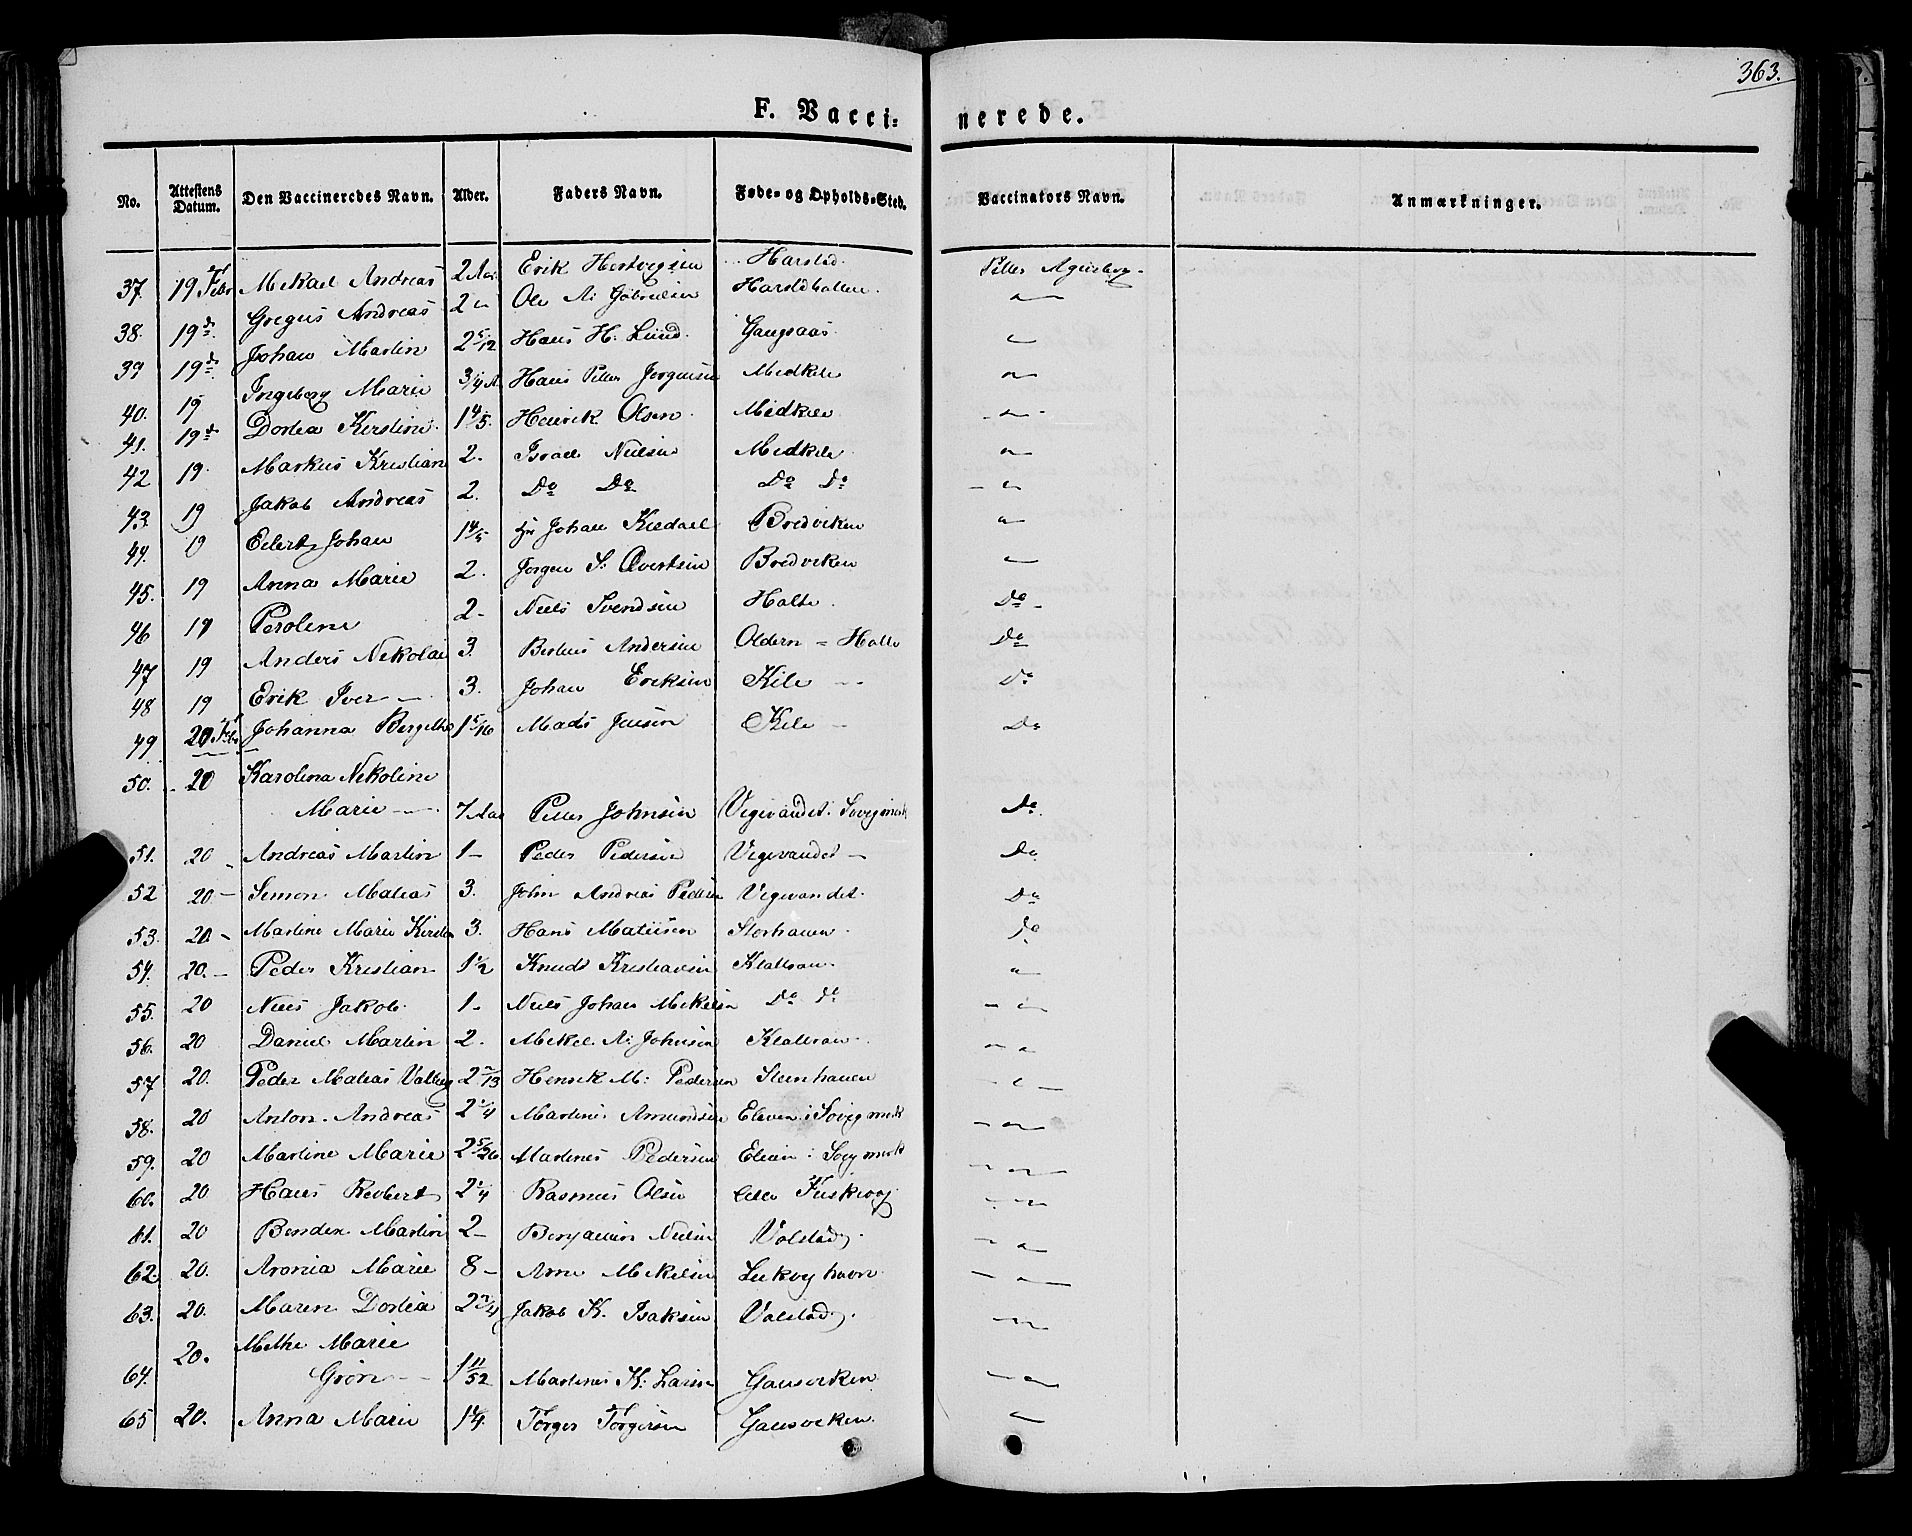 363.
F. Vacci= nerede.
No. Attestens Datum. Den Vaccineredes Navn. Alder. Faders Navn. Føde- og Opholds-Sted. Vaccinators Navn. Anmærkninger.
37 19 Febr Mekael Andreas 2 Aar Erik Hertvigsen Harstad Petter
38. 19 d Gregus Andreas 2 Ole A: Gabrielsen "
39 19 d Johan Martin 2 5/12 Hans H. Lund. Gangsaas "
40. 19 Ingeborg Marie 3/4 A. Hans Petter Jørgensen Medkile "
41. 19 d Dortea Kirstine 1 4/5. Henrik Olsen Medkile "
42 19. Markus Kristian 2. Israel Nielsen Medkile "
43. 19 Jakob Andreas 2. Do Do Do Do "
44. 19 Eilert Johan 1 4/5 Johan Kildael Bredviken "
45. 19 Anna Marie 2. Jørgen S: Evertsen Bredviken "
46 19 Peroline 2- Niels Svendsen Halte. Do -
47 19 Anders Nikolai 3. Bertius Andersen Oldern = Halte Do
48 19 Erik Iver - 3. Johan Eriksen Kile Do
49 20 Febr Johanna Bergitte 1 5/16 Mads Jensen Kile - Do
50. 20 Karolina Nekoline
Marie 7 Aar Petter Johnsen Vegevandet: Do.
51. 20 Andreas Martin 1- Peder Pedersen Vegevandet - Do
52 20 - Simon Mateas 3. John Andreas Pedersen Vegevandet. Do
53. 20. - Martine Marie 3. Hans Mateusen Storhaven Do
54. 20. - Peder Kristian 1 1/2 Knudt Kristiansen Klattran "
55. 20 Niels Jakob. 1- Niels Johan Mekelsen Do Do "
56. 20 Daniel Martin 2. Mekel A: Johnsen Klattran "
57 20. Peder Mateas 2 2/13 Henrik M: Pedersen Stenhaven "
58. 20 Anton Andreas 2 1/4 Martinus Amundsen "
59. 20 Martine Marie 2 5/26 Martines Pedersen "
60. 20 Hans Revbert 2 1/4 Rasmus Olsen Lille "
61. 20 Martin 2- Benjamin Nielsen "
62. 20. Aronia Marie 8- Arne Mekelsen "
63. 20. Maren Dortea 2 3/4 Jakob K. Isaksen "
20. Methe Marie
64. Grøn - 1 11/52 Martines K: Larsen Gansviken "
65 20. Anna Marie 1 1/4. Torger Torgersen Gausviken. "